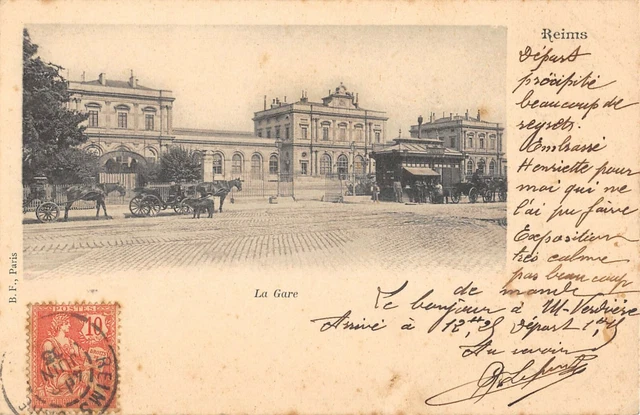 Reims
Départ
précipité
beaucoup de
regrets.
Embrassé
Henriette pour
moi qui ne
l'ai pu faire
Exposition
très calme
pas beaucoup
de monde
Le bonjour à M. Verdière
Arrivé à 12,25 Départ 1,
Au revoir
La Gare
B. F., Paris
POSTES
10
REIMS